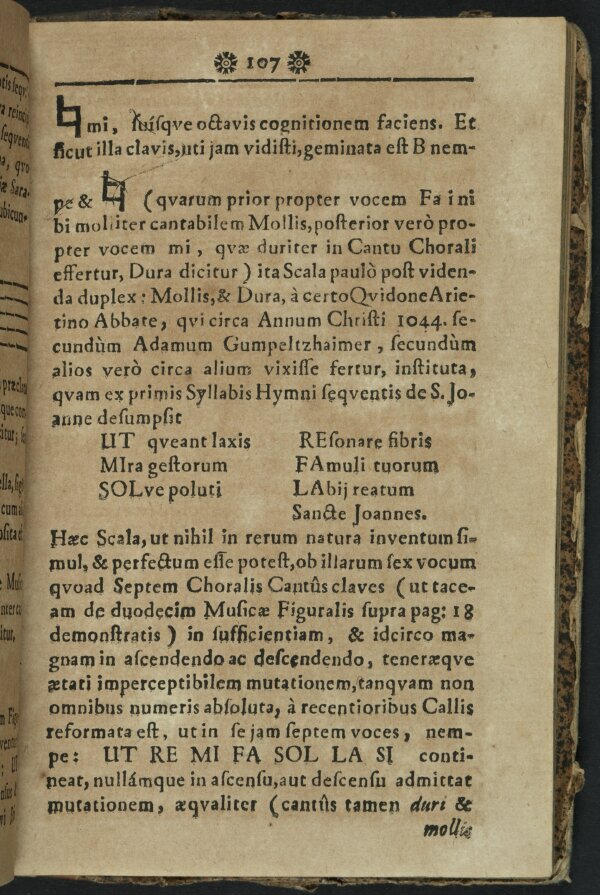 107
♮ mi, suisqve octavis cognitionem faciens. Et
sicut illa clavis, uti jam vidisti, geminata est B nem-
pe & ♮ (qvarum prior propter vocem Fa i ni
bi molliter cantabilem Mollis, posterior verò pro-
pter vocem mi, qvæ duriter in Cantu Chorali
effertur, Dura dicitur) ita Scala paulò post viden-
da duplex: Mollis, & Dura, à certo Qvidone Arie-
tino Abbate, qvi circa Annum Christi 1044. se-
cundùm Adamum Gumpeltzhaimer, secundùm
alios verò circa alium vixisse fertur, instituta,
qvam ex primis Syllabis Hymni seqventis de S. Jo-
anne desumpsit
UT qveant laxis REsonare fibris
MIra gestorum FAmuli tuorum
SOLve poluti LAbij reatum
Sancte Joannes.
Hæc Scala, ut nihil in rerum natura inventum si-
mul, & perfectum esse potest, ob illarum sex vocum
qvoad Septem Choralis Cantûs claves (ut tace-
am de duodecim Musicæ Figuralis supra pag: 18
demonstratis) in sufficientiam, & idcirco ma-
gnam in ascendendo ac descendendo, teneræqve
ætati imperceptibilem mutationem, tanqvam non
omnibus numeris absoluta, à recentioribus Callis
reformata est, ut in se jam septem voces, nem-
pe: UT RE MI FA SOL LA SI conti-
neat, nullámque in ascensu, aut descensu admittat
mutationem, æqvaliter (cantûs tamen duri &
mollis